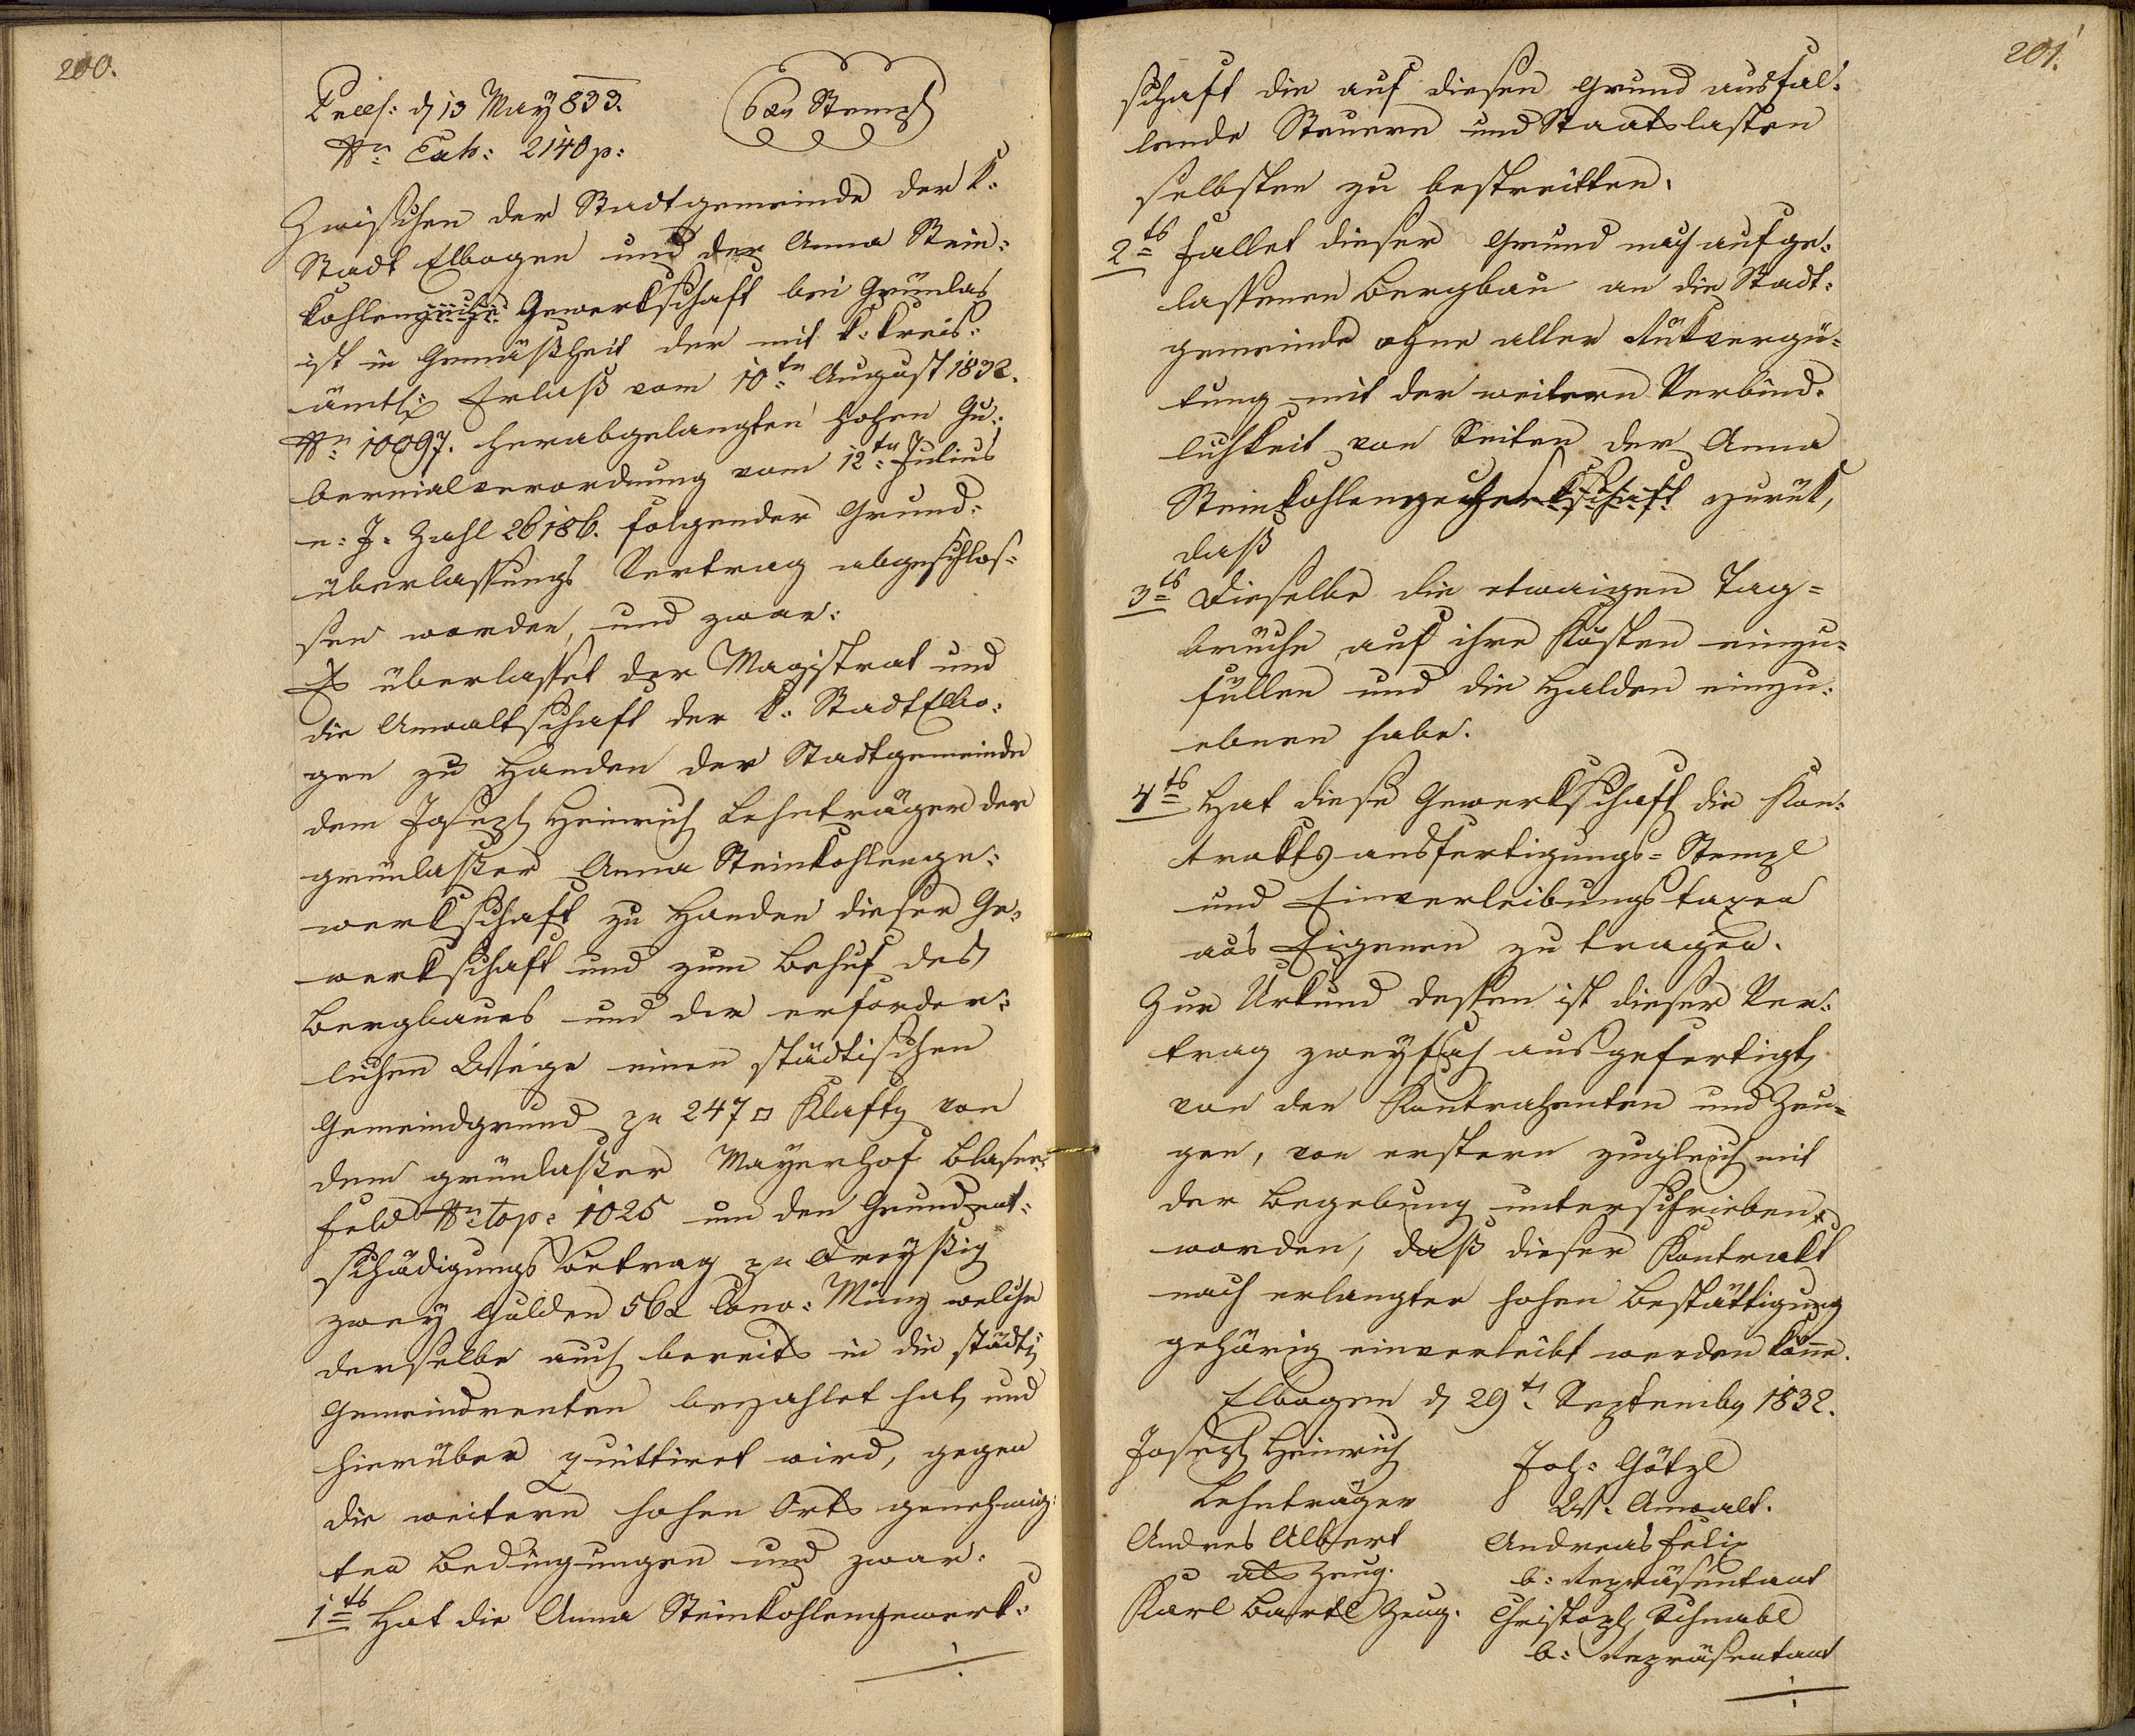 200.
Præs: d 13 May 833.
Nr. Exh: 2140 p:
6 xr Stempl
Zwischen der Stadtgemeinde der k.
Stadt Elbogen und der Anna Stein:
kohlenzeche Gewerkschaft bei Grünlas
ist in Gemäßheit der mit k. Kreis:
ämtl: Erlaß vom 10tn August 1832.
Nr. 10097. herabgelangten hohen Gu:
bernialverordnung vom 12tn Julius
n: J. Zahl 26186. folgender Grund:
überlassungs Vertrag abgeschlos:
sen worden, und zwar:
Es überlasset der Magistrat und
die Anwaltschaft der k. Stadt Elbo:
gen zu Handen der Stadtgemeinde
dem Joseph Heinrich Lehnträger der
grünlaßer Anna Steinkohlenge:
werkschaft zu Handen dieser Ge:
werkschaft und zum Behuf des
Bergbaues und der erforder:
lichen Wege einen städtischen
Gemeindgrund zu 247 □ Klaftr von
dem grünlaßer Mayerhof Blasen:
feld Nr. top: 1025 um den Grundent:
schädigungs Betrag zu Dreyßig
zwey Gulden 56 x Conv: Münz welche
derselbe auch bereits in die städt:
Gemeindrenten bezahlet hat, und
hierüber quittiret wird, gegen
die weitern hohen Orts genehmig:
ten Bedingungen und zwar:
1tens Hat die Anna Steinkohlengewerk:
./.
201.
schaft die auf diesen Grund ausfal:
lende Steuern und Staatslasten
selbsten zu bestreitten.
2tens fallet dieser Grund nach aufge:
lassenen Bergbau an die Stadt:
gemeinde ohne aller Rükvergü:
tung mit der weitern Verbind:
lichkeit von Seiten der Anna
Steinkohlenzecherkschaft zurük,
daß
3tens Dieselbe die etwaigen Tag=
brüche auf ihre Kösten einzu=
füllen und die Halden einzu:
ebnen habe.
4tens Hat diese Gewerkschaft die Kon:
trakts ausfertigungs= Stempl
und Einverleibungstaxen
aus Eigenen zu tragen.
Zur Urkund dessen ist dieser Ver:
trag zweyfach ausgefertigt,
von den Kontrahenten und Zeu=
gen, von erstern zugleich mit
der Begebung unterschrieben
worden, daß dieser Kontrakt
nach erlangter hohen Bestättigung
gehörig einverleibt werden könne.
Elbogen d 29tn Septembr 1832.
Joseph Heinrich
Lehnträger
Andres Albert
als Zeug.
Karl Bartl Zeug.
Joh: Götzl
W. Anwalt.
Andreas Felix
b: Repräsentant
Christoph Schnabl
b: Repräsentant
./.